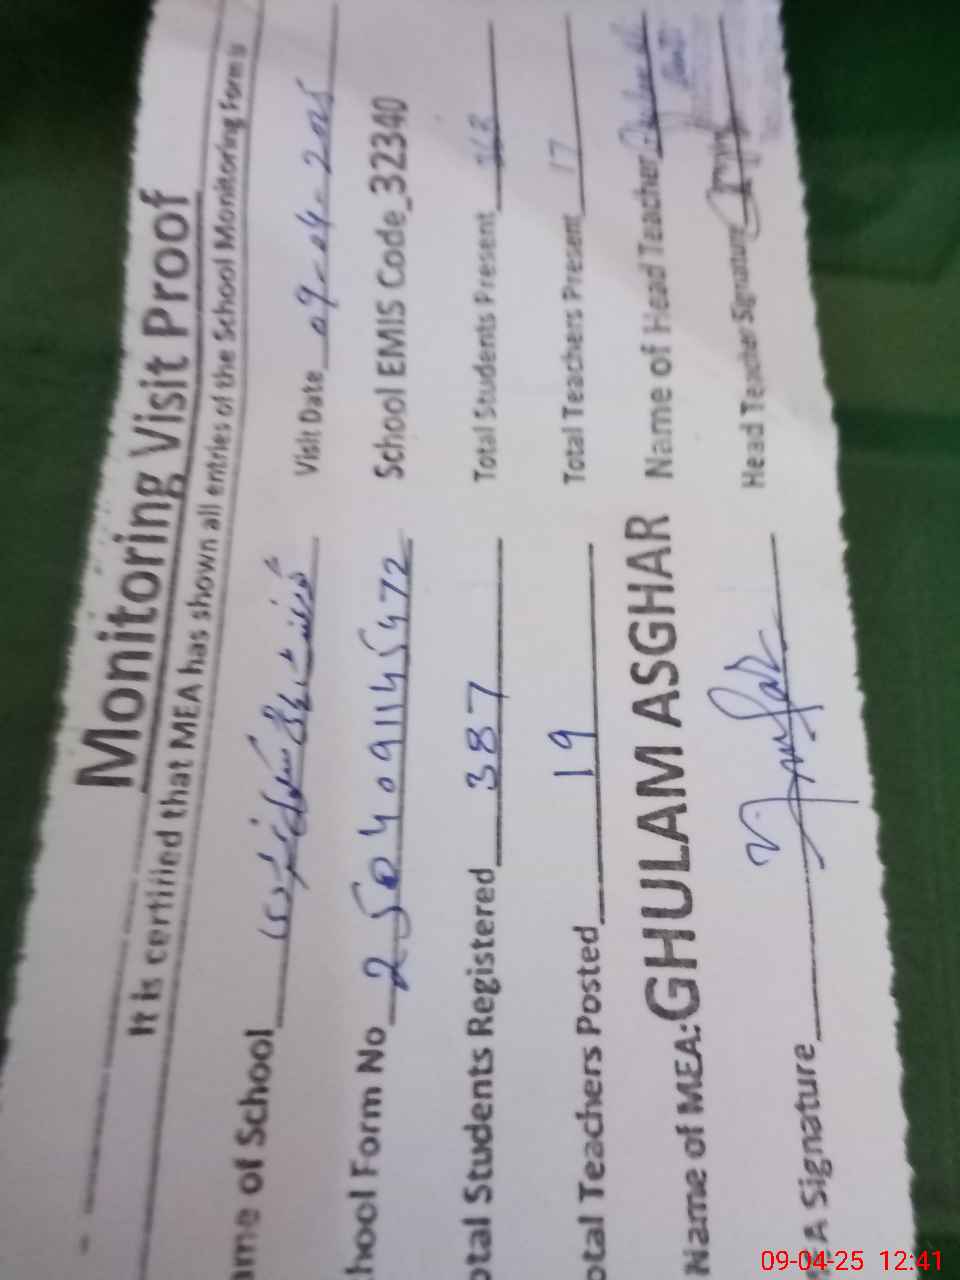 Monitoring Visit Proof
It is certified that MEA has shown all entries of the School Monitoring Form is
ame of School Visit Date 09-04-2025
hool Form No 2504091145472 School EMIS Code 32340
otal Students Registered 387 Total Students Present
otal Teachers Posted 19 Total Teachers Present 17
Name of MEA: GHULAM ASGHAR Name of Head Teacher
EA Signature Head Teacher Signature
09-04-25 12:41